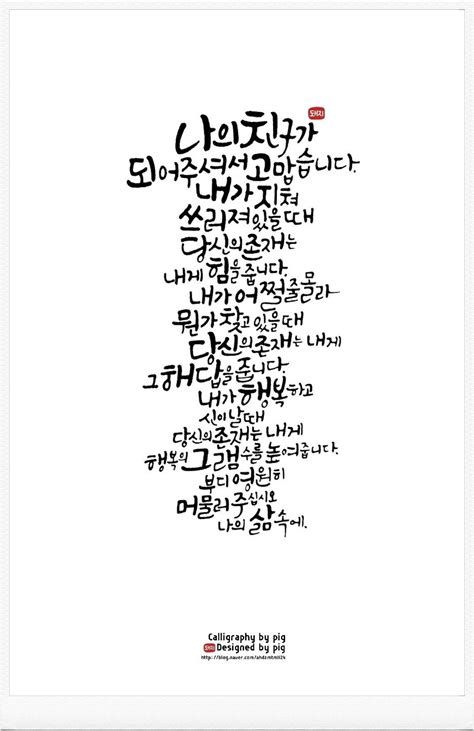 돼지
나의 친구가
되어주셔서 고맙습니다.
내가 지쳐
쓰러져 있을때
당신의 존재는
내게 힘을 줍니다.
내가 어쩔줄몰라
뭔가 찾고 있을때
당신의 존재는 내게
그 해답을 줍니다.
내가 행복하고
신이날때
당신의 존재는 내게
행복의 그램 수를 높여줍니다.
부디 영원히
머물러 주십시오
나의 삶 속에.
Calligraphy by pig
돼지 Designed by pig